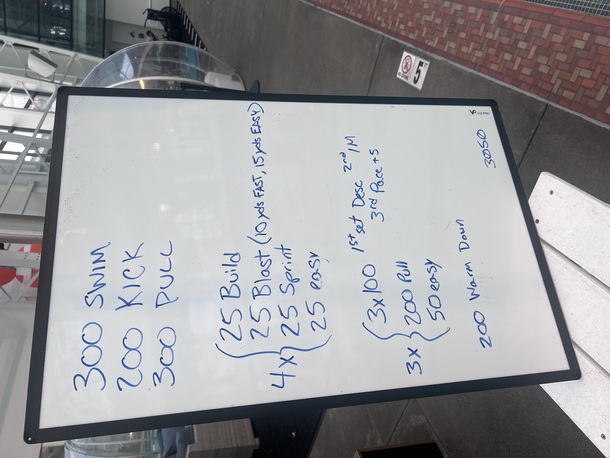 300 SWIM
200 KICK
300 PULL
4x { 25 Build
25 Blast (10 yds FAST, 15 yds EASY)
25 Sprint
25 easy
3x { 3x100 1st set Desc 2nd IM
3rd Pace +5
200 Pull
50 easy
200 Warm Down
3050
5